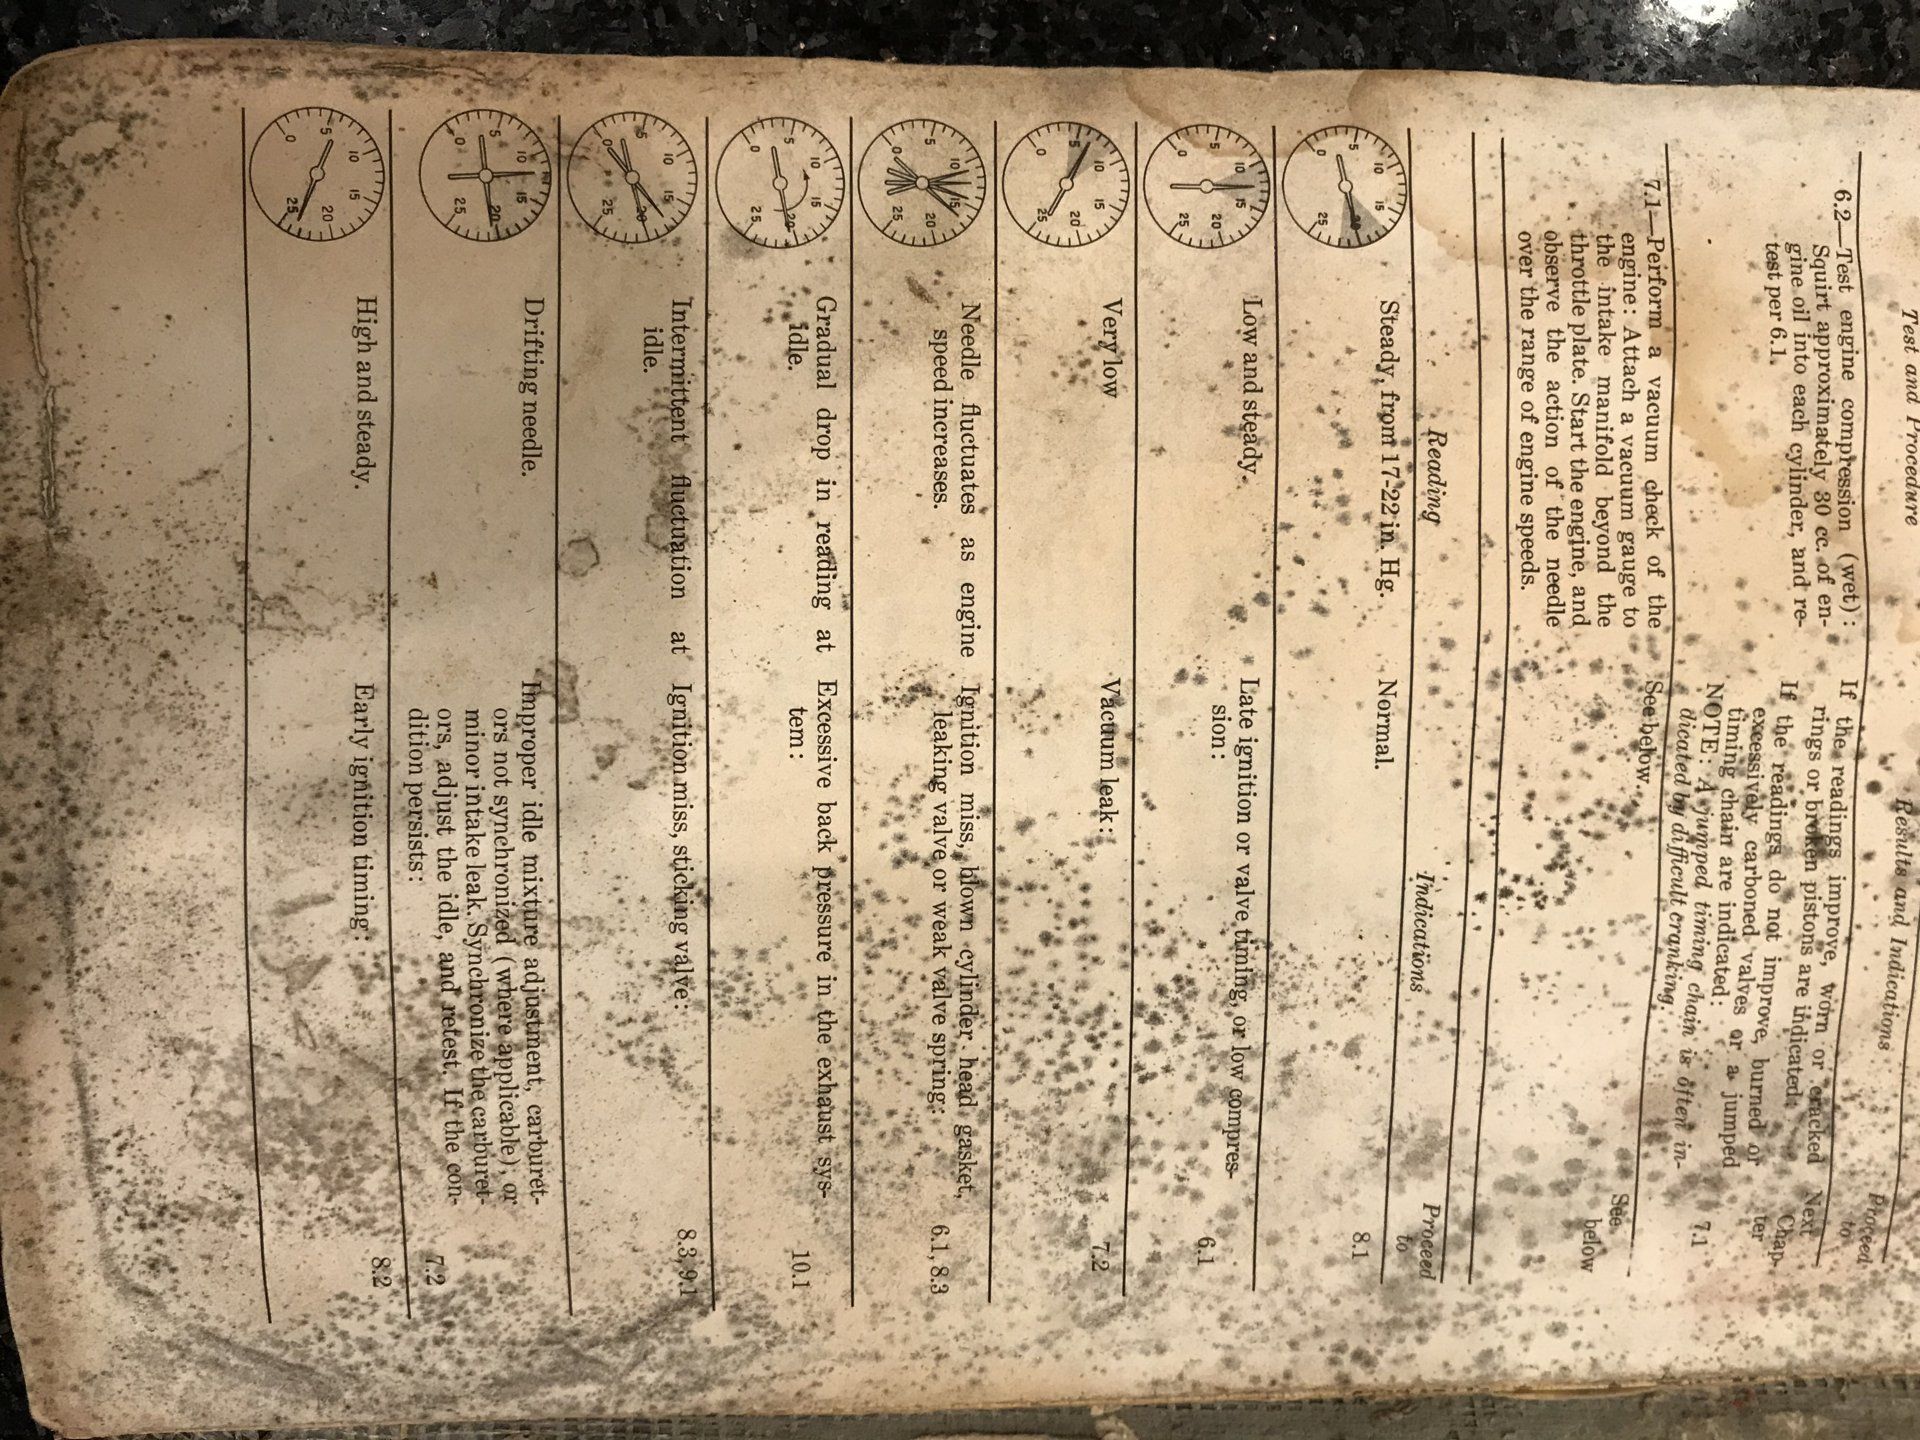 Test and Procedure
Results and Indications
Proceed
to
6.2—Test engine compression (wet):
Squirt approximately 30 cc. of en-
gine oil into each cylinder, and re-
test per 6.1.
If the readings improve, worn or cracked
rings or broken pistons are indicated:
If the readings do not improve, burned or
excessively carboned valves or a jumped
timing chain are indicated:
NOTE: A jumped timing chain is often in-
dicated by difficult cranking.
Next
Chap-
ter
7.1
7.1—Perform a vacuum check of the
engine: Attach a vacuum gauge to
the intake manifold beyond the
throttle plate. Start the engine, and
observe the action of the needle
over the range of engine speeds.
See below.
See
below
Reading
Indications
Proceed
to
0 5 10 15 20 25
Steady, from 17-22 in. Hg.
Normal.
8.1
0 5 10 15 20 25
Low and steady.
Late ignition or valve timing, or low compres-
sion:
6.1
0 5 10 15 20 25
Very low
Vacuum leak:
7.2
0 5 10 15 20 25
Needle fluctuates as engine
speed increases.
Ignition miss, blown cylinder head gasket,
leaking valve or weak valve spring:
6.1, 8.3
0 5 10 15 20 25
Gradual drop in reading at
idle.
Excessive back pressure in the exhaust sys-
tem:
10.1
0 5 10 15 20 25
Intermittent fluctuation at
idle.
Ignition miss, sticking valve:
8.3, 9.1
0 5 10 15 20 25
Drifting needle.
Improper idle mixture adjustment, carburet-
ors not synchronized (where applicable), or
minor intake leak. Synchronize the carburet-
ors, adjust the idle, and retest. If the con-
dition persists:
7.2
0 5 10 15 20 25
High and steady.
Early ignition timing:
8.2